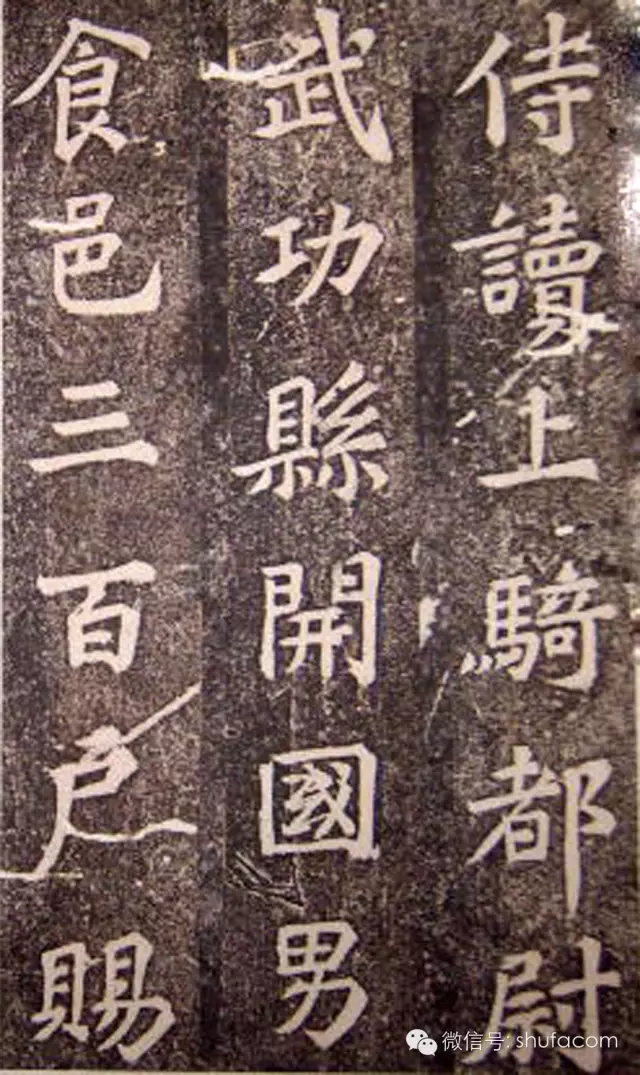 侍讀上騎都尉
武功縣開國男
食邑三百戶賜
微信号: shufacom